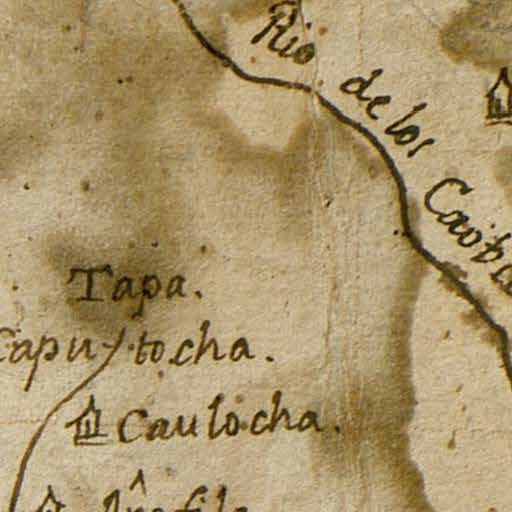 Rio de los Caoba
Tapa.
Capuytocha.
Caulocha.